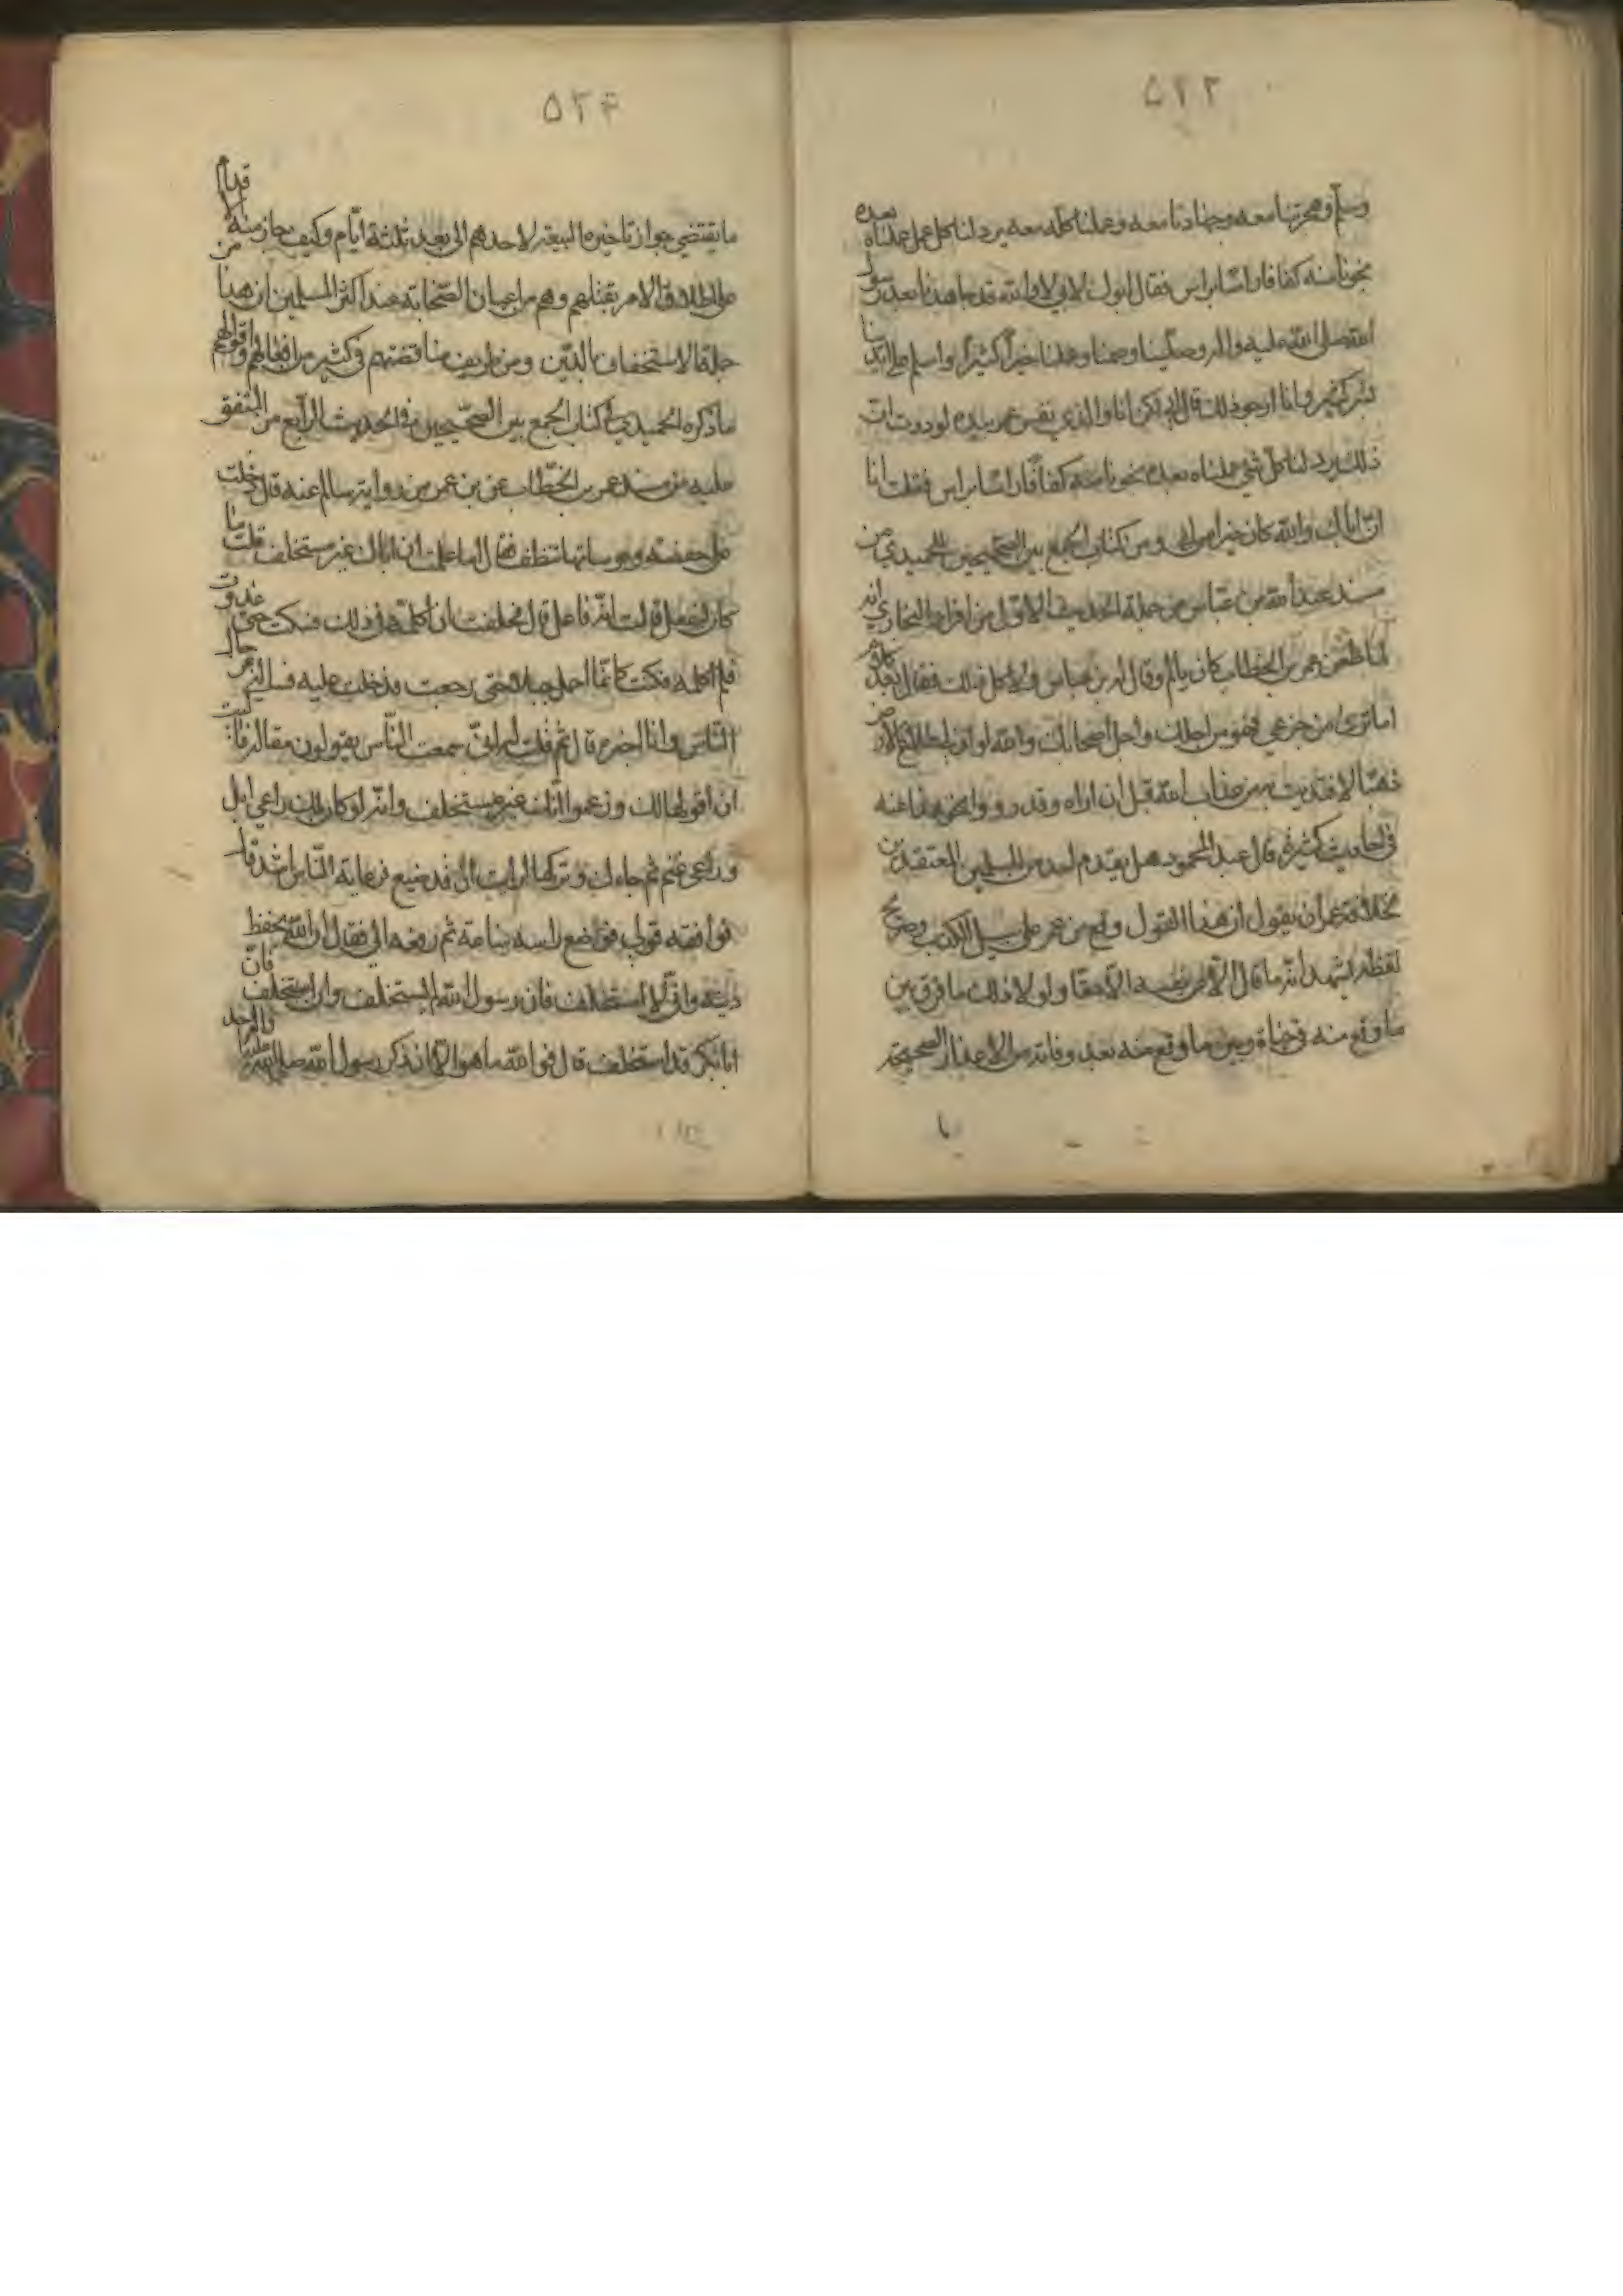 ۵۲۳
وسلم وهجرتنا معه وجهادنا معه وعملنا كله معه يرد لنا كل عمل عملناه بعده
نجونا منه كفافا راسا براس فقال ابوك لابي لا والله قد جاهدنا بعد رسول
الله صلى الله عليه واله وصلينا وصمنا وعملنا خيرا كثيرا واسلم على ايدينا
بشر كثير وانا ارجو ذلك قال ابي لكن انا والذي نفس عمر بيده لوددت ان
ذلك يرد لنا كل شيء عملناه بعده نجونا منه كفافا راسا براس فقلت انا
ان اباك والله كان خيرا من ابي ومن كتاب الجمع بين الصحيحين للحميدي من
مسند عبد الله بن عباس من جملة الحديث الاول من افراد البخاري انه
لما طعن عمر بن الخطاب كان يالم وقال له ابن عباس ولا كل ذلك فقال بعد كلام
اما ترى من جزعي فهو من اجلك واجل اصحابك والله لو ان لي طلاع الارض
ذهبا لافتديت به من عذاب الله قبل ان اراه وقد رووا نحو هذا عنه
في احاديث كثيرة قال عبد المحمود هل يقدم احد من المسلمين المعتقدين
بخلافة عمر ان يقول ان هذا القول وقع من عمر على سبيل الكذب وصريح
لفظه يشهد انه ما قال الا عن نفسه الا حقا ولولا ذلك ما فرق بين
ما وقع منه في حياة وبين ما وقع منه بعد وفاته من الاعذار الصحيحة
۵۲۴
ما يقتضي جواز تاخيرها البيعة لاحدهم الى بعد ثلثة ايام وكيف جاز منه الاقدام
على اطلاق الامر بقتلهم وهم من اعيان الصحابة عند اكثر المسلمين ان هذا من
جملة الاستخفاف بالدين ومن طريف مناقضتهم في كثير من افعالهم واقوالهم
ما ذكره الحميدي في كتاب الجمع بين الصحيحين في الحديث الرابع من المتفق
عليه من مسند عمر بن الخطاب عن بن عمر من رواية سالم عنه قال دخلت
على حفصة ونوساتها تنطف فقال اما علمت ان اباك غير مستخلف قلت ما
كان ليفعل قالت انه فاعل قال فحلفت ان اكلمه في ذلك فسكت حتى غدوت
فلم اكلمه فكنت كانما احمل جبلا حتى رجعت فدخلت عليه فسالني عن حال
الناس وانا اخبره قال ثم قلت له اني سمعت الناس يقولون مقالة فآليت
ان اقولها لك وزعموا انك غير مستخلف وانه لو كان لك راعي ابل
وراعي غنم ثم جاءك وتركها لرايت ان قد ضيع فرعاية الناس اشد قال
فوافقه قولي فوضع راسه ساعة ثم رفعه الي فقال ان الله يحفظ
دينه واني لا استخلف فان رسول الله لم يستخلف وان استخلف فان
ابا بكر قد استخلف قال فوالله ما هو الا ان ذكر رسول الله صلى الله عليه